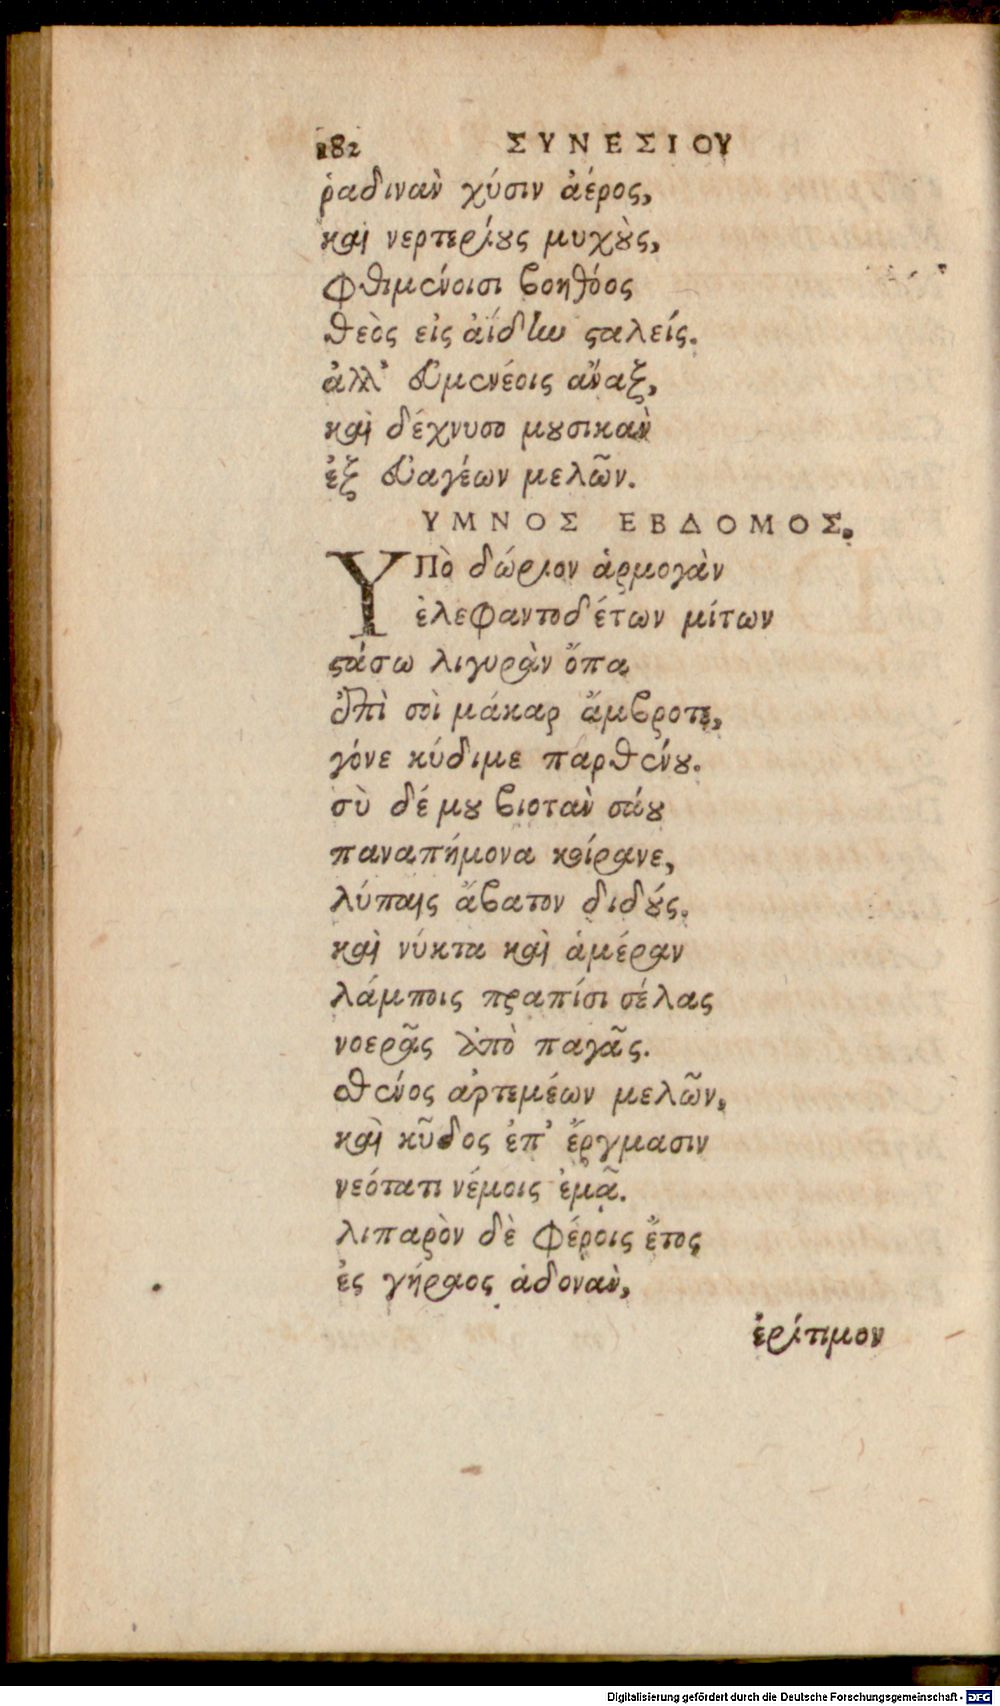 182 ΣΥΝΕΣΙΟΥ
ῥαδινὰν χύσιν ἀέρος,
καὶ νερτερίους μυχοὺς,
φθιμένοισι βοηθόος
θεὸς εἰς ἀΐδην σταλείς.
ἀλλ' εὐμενέοις ἄναξ,
καὶ δέχνυσο μουσικὰν
ἐξ εὐαγέων μελῶν.
ΥΜΝΟΣ ΕΒΔΟΜΟΣ.
ΥΠὸ δώριον ἁρμογὰν
ἐλεφαντοδέτων μίτων
στάσω λιγυρὰν ὄπα
ἐπὶ σοὶ μάκαρ ἄμβροτε,
γόνε κύδιμε παρθένου.
σὺ δέ μου βιοτὰν σάου
παναπήμονα κοίρανε,
λύπαις ἄβατον διδούς.
καὶ νύκτα καὶ ἁμέραν
λάμποις πραπίσι σέλας
νοερᾶς ἀπὸ παγᾶς.
σθένος ἀρτεμέων μελῶν,
καὶ κῦδος ἐπ' ἔργμασιν
νεότατι νέμοις ἐμᾷ.
λιπαρὸν δὲ φέροις ἔτος
ἐς γήραος ἁδονὰν,
ἐρίτιμον
Digitalisierung gefördert durch die Deutsche Forschungsgemeinschaft - DFG